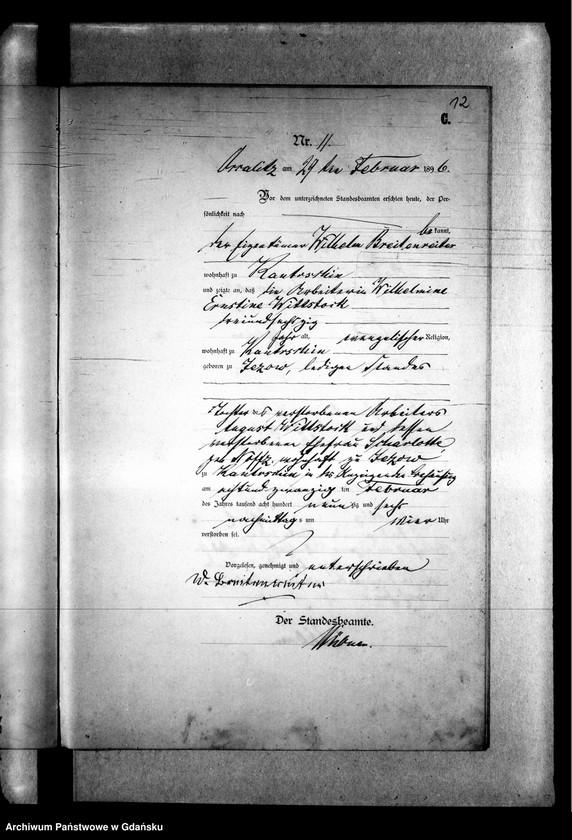 12
C.
Nr. 11.
am 29ten Februar 1896.
Vor dem unterzeichneten Standesbeamten erschien heute, der Per-
sönlichkeit nach
bekannt,
der Eigentümer Wilhelm Breitenreiter
wohnhaft zu
und zeigte an, daß die Arbeiterin Wilhelmine
Ernstine Wittstock
Jahr alt, evangelischer Religion,
wohnhaft zu
geboren zu Jezow, ledigen Standes
Tochter des verstorbenen Arbeiters
August Wittstock und dessen
verstorbenen Ehefrau Scharlotte
geb. wohnhaft zu Jezow
zu in des Anzeigenden Behausung
am achtundzwanzigsten Februar
des Jahres tausend acht hundert neunzig und sechs
nachmittags um vier Uhr
verstorben sei.
Vorgelesen, genehmigt und unterschrieben
W. Breitenreiter
Der Standesbeamte.
Archiwum Państwowe w Gdańsku